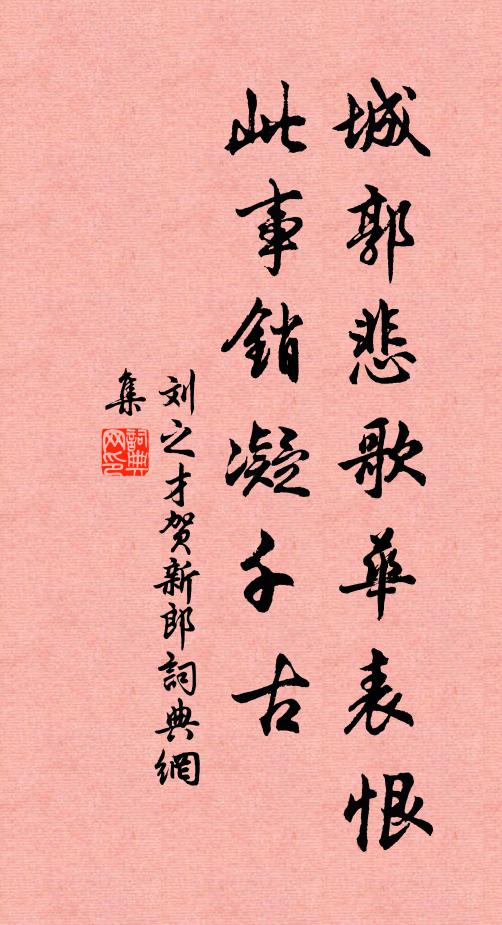 城郭悲歌華表恨
此事銷凝千古
刘之才贺新郎詞典網
集
詞典
网印